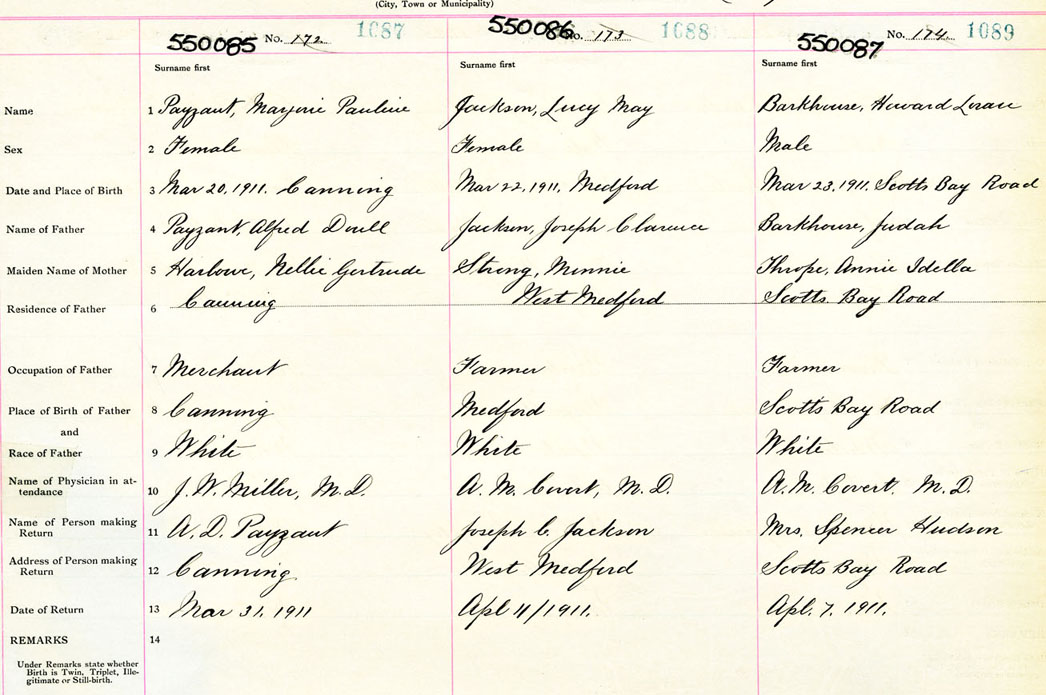 (City, Town or Municipality)
550085 No. 172 1087 550086 No. 173 1088 550087 No. 174 1089
Surname first Surname first Surname first
Name 1 Payzant, Marjorie Pauline Jackson, Lucy May Barkhouse, Howard
Sex 2 Female Female Male
Date and Place of Birth 3 Mar 20, 1911. Canning Mar 22, 1911, Medford Mar 23, 1911, Scotts Bay Road
Name of Father 4 Payzant, Alfred Doull Jackson, Joseph Clarence Barkhouse, Judah
Maiden Name of Mother 5 Harlow, Nellie Gertrude Strong, Minnie Thrope, Annie Idella
Residence of Father 6 Canning West Medford Scotts Bay Road
Occupation of Father 7 Merchant Farmer Farmer
Place of Birth of Father 8 Canning Medford Scotts Bay Road
and
Race of Father 9 White White White
Name of Physician in at-
tendance 10 J. W. Miller, M.D. A. M. Covert, M.D. A. M. Covert. M.D.
Name of Person making
Return 11 A. D. Payzant Joseph C. Jackson Mrs. Spencer Hudson
Address of Person making
Return 12 Canning West Medford Scotts Bay Road
Date of Return 13 Mar 31, 1911 Apl 4/1911. Apl. 7. 1911.
REMARKS 14
Under Remarks state whether
Birth is Twin, Triplet, Ille-
gitimate or Still-birth.